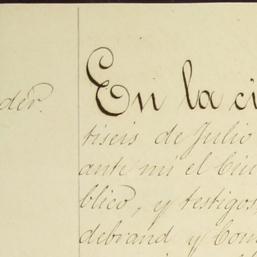 der.
En la ci
tiseis de Julio
ante mi el Ciu
blico, y testigos
debrand y Com